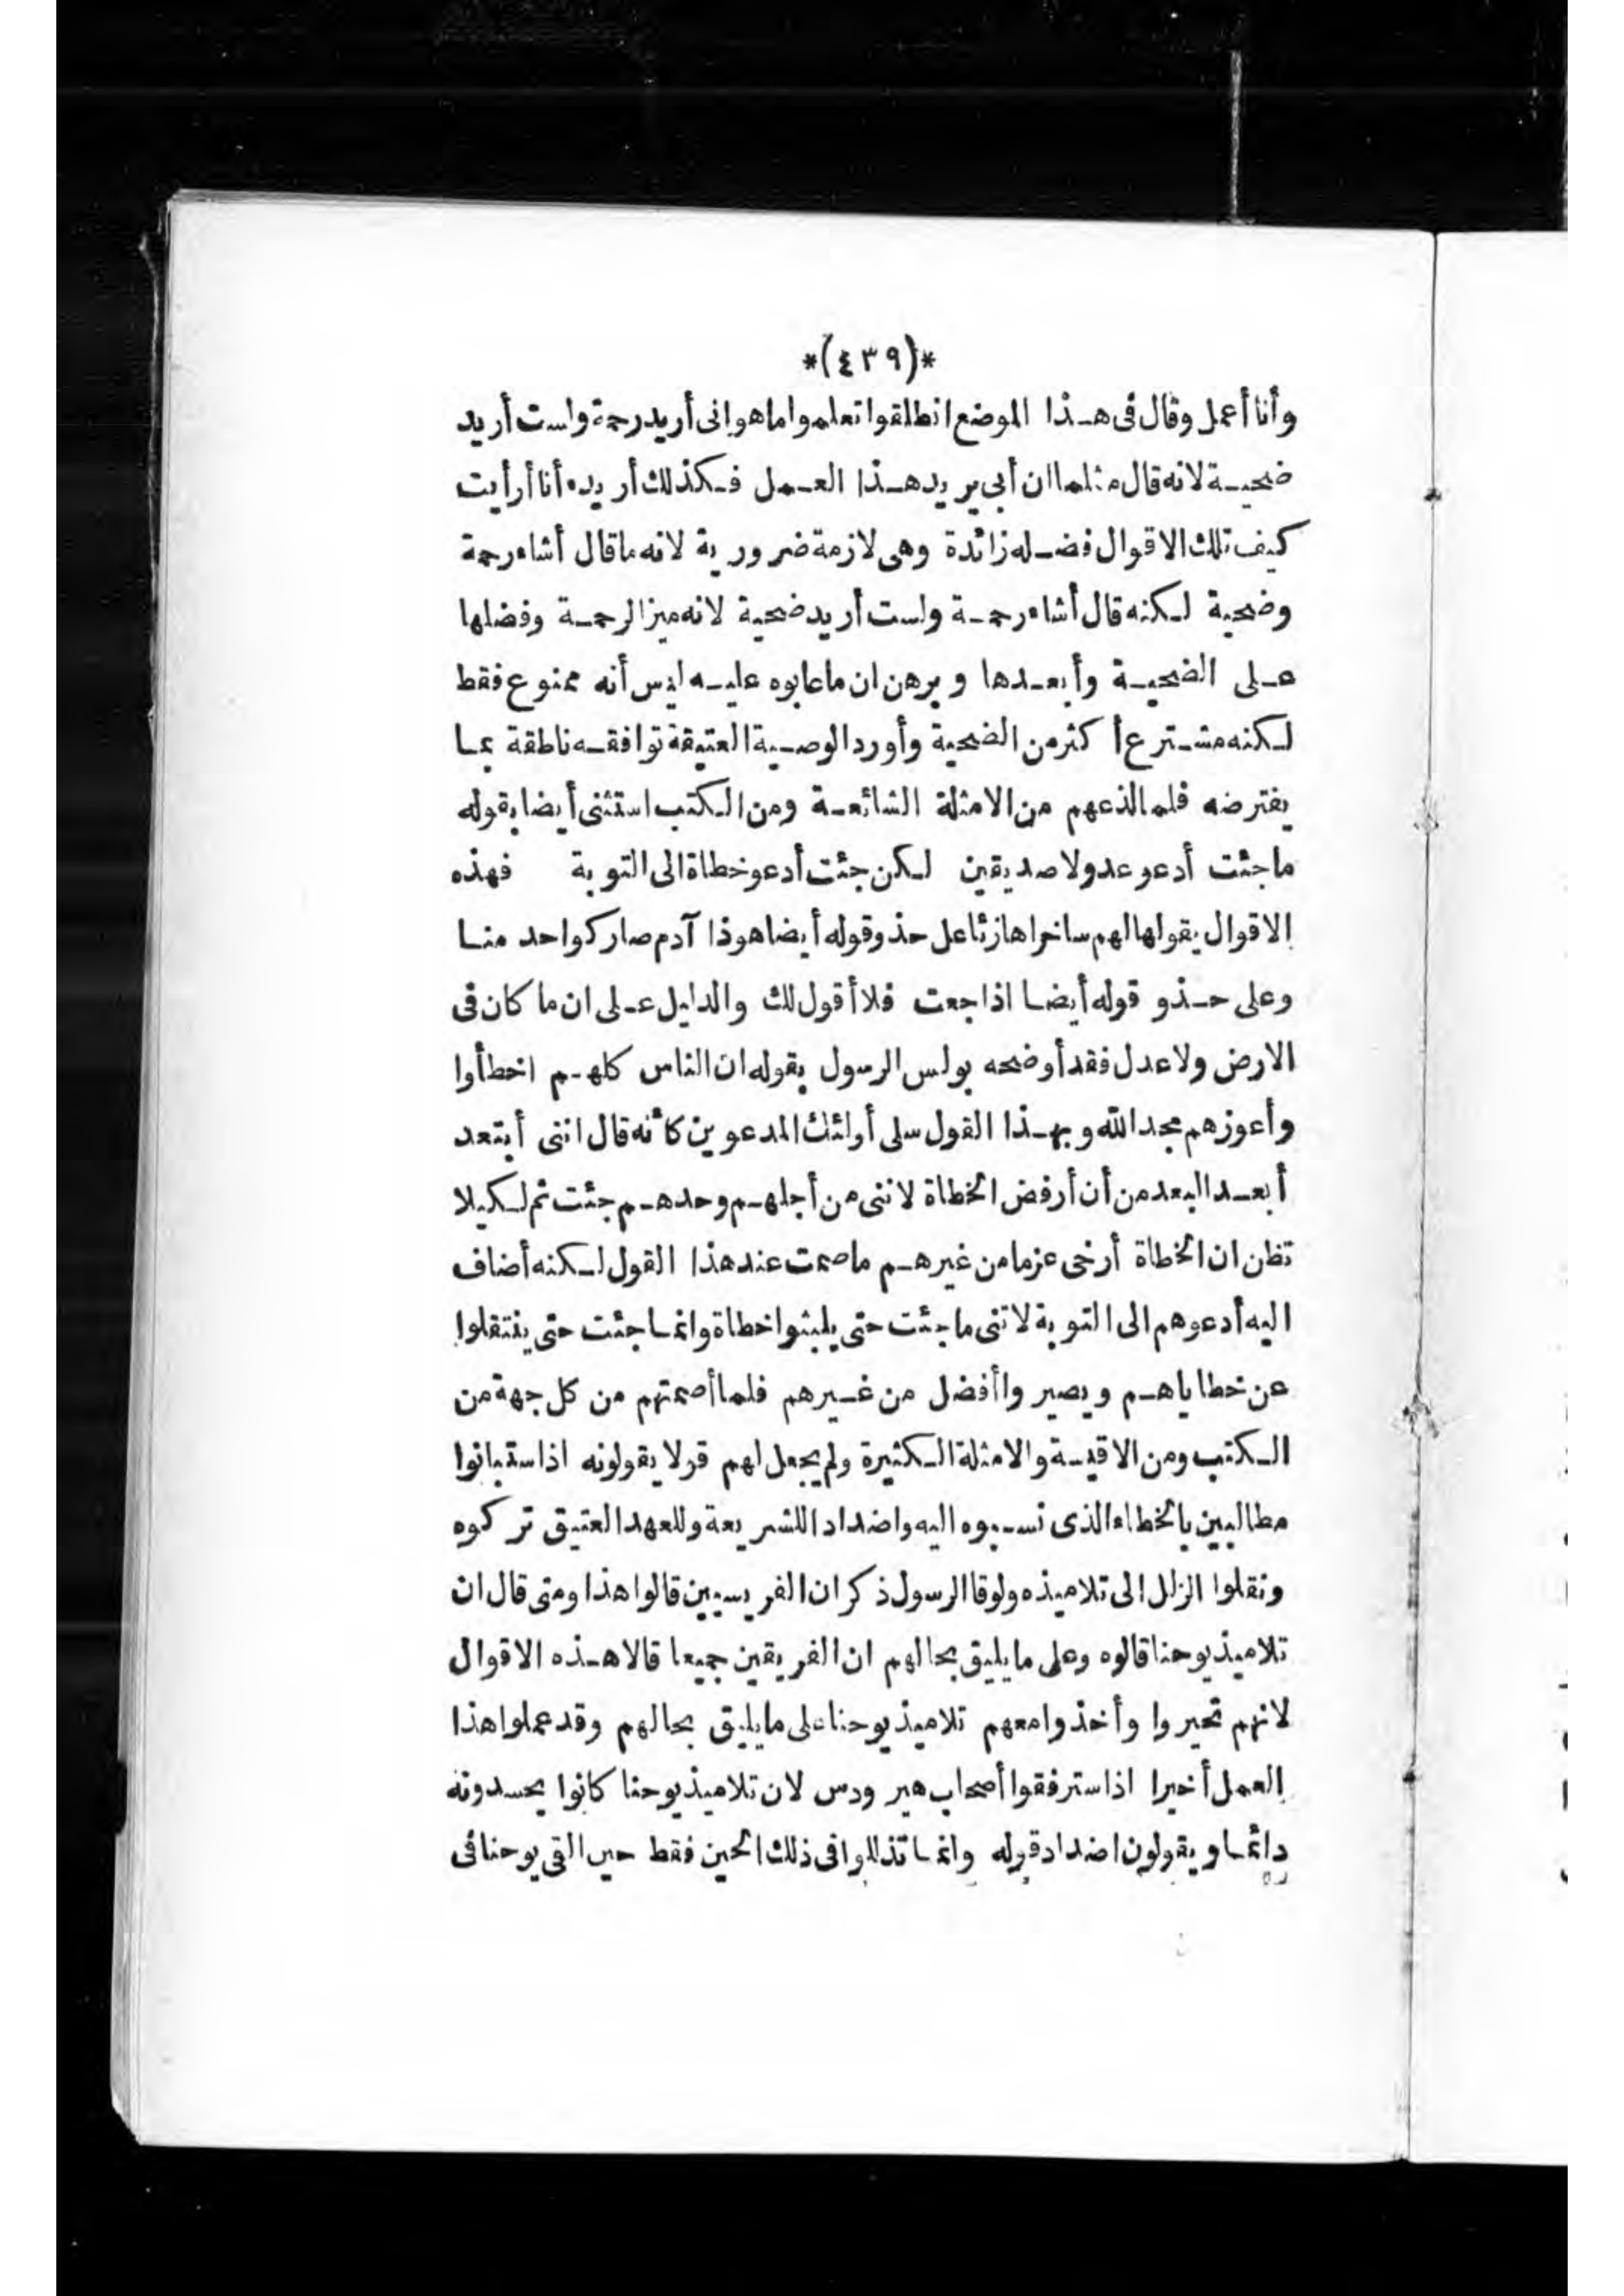 *(٤٣٩)*
وأنا أعمل وقال فى هذا الموضع انطلقوا تعلموا ما هو انى أريد رحمة ولست أريد
ضحية لانه قال مثلما ان أبى يريد هذا العمل فكذلك أريده أنا أرأيت
كيف تلك الاقوال فضله زائدة وهى لازمة ضرورية لانه ما قال أشاء رحمة
وضحية لكنه قال أشاء رحمة ولست أريد ضحية لانه ميز الرحمة وفضلها
على الضحية وأبعدها وبرهن ان ما عابوه عليه ليس أنه ممنوع فقط
لكنه مشترع أكثر من الضحية وأورد الوصية العتيقة توافقه ناطقة بما
يفترضه فلما لذعهم من الامثلة الشائعة ومن الكتب استثنى أيضا بقوله
ما جئت أدعو عدولا صديقين لكن جئت أدعو خطاة الى التوبة فهذه
الاقوال يقولها لهم ساخرا هازئا على حذو قوله أيضا هوذا آدم صار كواحد منا
وعلى حذو قوله أيضا اذا جعت فلا أقول لك والدليل على ان ما كان فى
الارض ولا عدل فقد أوضحه بولس الرسول بقوله ان الناس كلهم اخطأوا
وأعوزهم مجد الله وبهذا القول سلى أولئك المدعوين كأنه قال اننى أبتعد
أبعد البعد من أن أرفض الخطاة لاننى من أجلهم وحدهم جئت ثم لكيلا
تظن ان الخطاة أرخى عزما من غيرهم ما صمت عند هذا القول لكنه أضاف
اليه أدعوهم الى التوبة لاننى ما جئت حتى يلبثوا خطاة وانما جئت حتى ينتقلوا
عن خطاياهم ويصيروا أفضل من غيرهم فلما أصمتهم من كل جهة من
الكتب ومن الاقيسة والامثلة الكثيرة ولم يجعل لهم قولا يقولونه اذ استبانوا
مطالبين بالخطاء الذى نسبوه اليه واضدادا للشريعة وللعهد العتيق تركوه
ونقلوا الزلل الى تلاميذه ولوقا الرسول ذكر ان الفريسيين قالوا هذا ومتى قال ان
تلاميذ يوحنا قالوه وعلى ما يليق بحالهم ان الفريقين جميعا قالا هذه الاقوال
لانهم تحيروا وأخذوا معهم تلاميذ يوحنا على ما يليق بحالهم وقد عملوا هذا
العمل أخيرا اذ استرفقوا أصحاب هيرودس لان تلاميذ يوحنا كانوا يحسدونه
دائما ويقولون اضداد قوله وانما تذللوا فى ذلك الحين فقط حين القى يوحنا فى